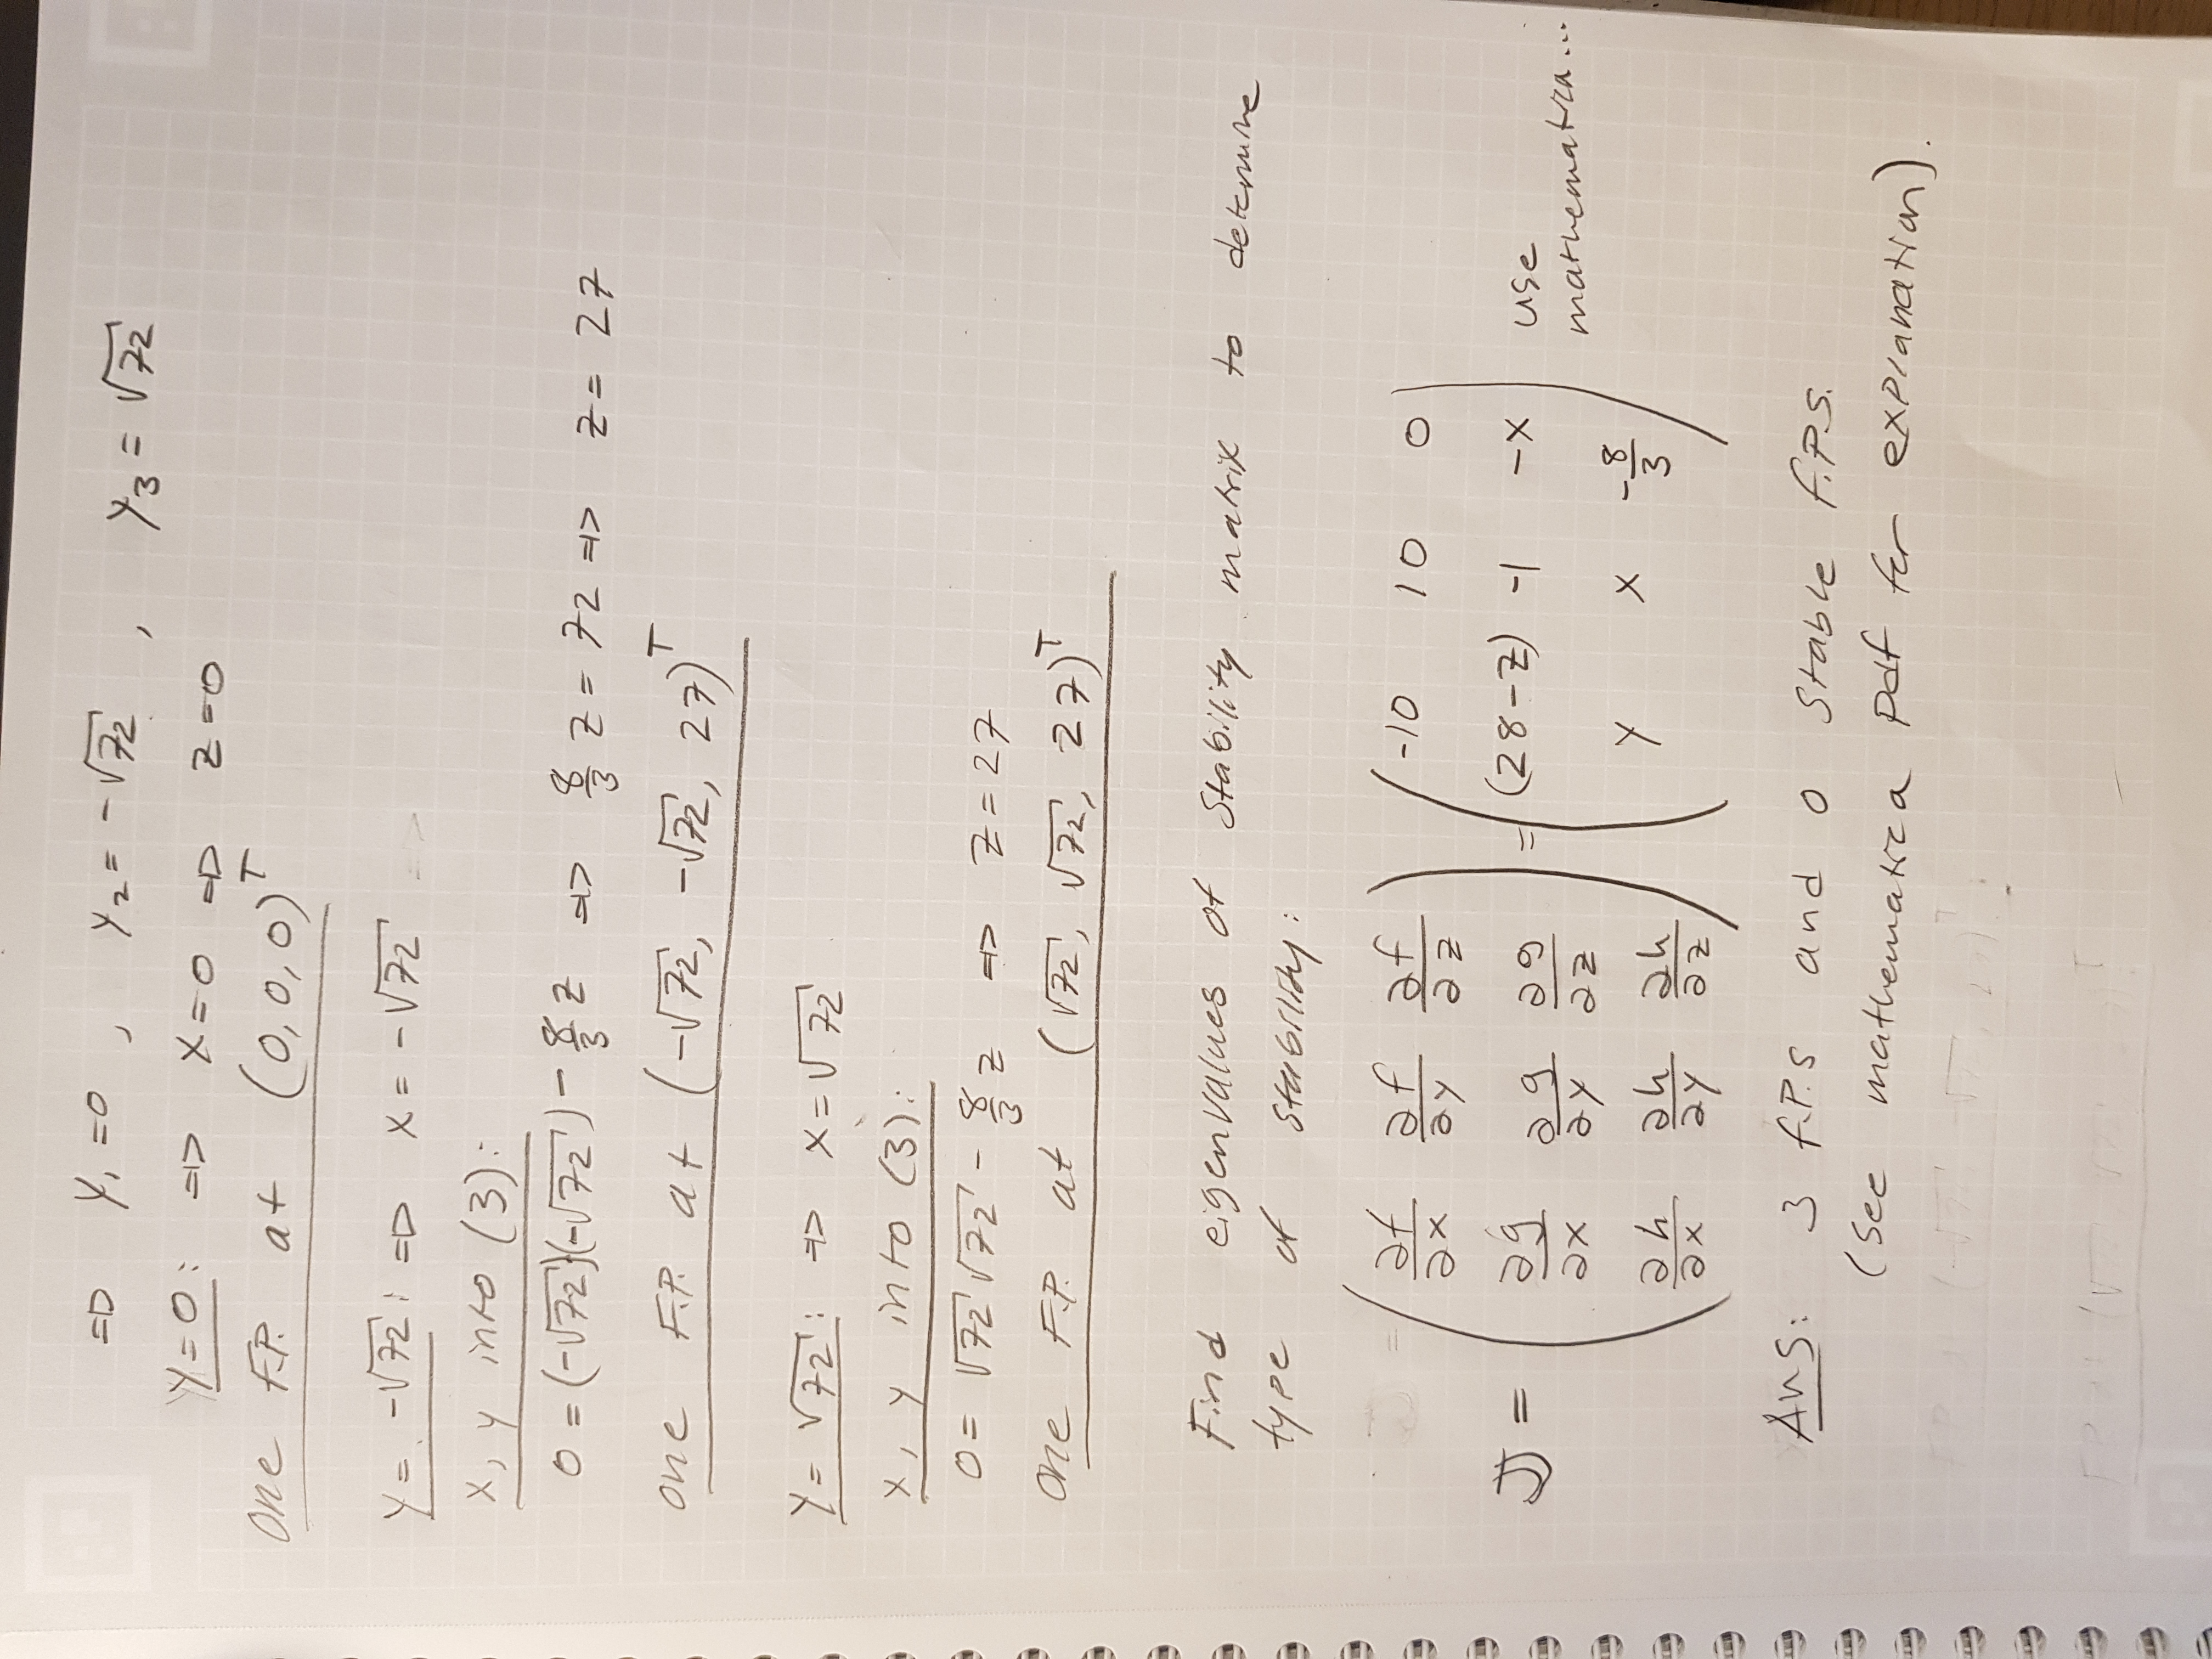 ⇒ y₁ = 0 , y₂ = -√72 , y₃ = √72
y = 0 : ⇒ x = 0 ⇒ z = 0
One F.P. at (0, 0, 0)ᵀ
y = -√72 : ⇒ x = -√72 ⇒
x, y into (3):
0 = (-√72)(-√72) - 8/3 z ⇒ 8/3 z = 72 ⇒ z = 27
one F.P. at (-√72, -√72, 27)ᵀ
y = √72 : ⇒ x = √72
x, y into (3):
0 = √72 √72 - 8/3 z ⇒ z = 27
One F.P. at (√72, √72, 27)ᵀ
Find eigenvalues of Stability matrix to determine
type of stability:
J = ( ∂f/∂x ∂f/∂y ∂f/∂z ) = ( -10 10 0 )
( ∂g/∂x ∂g/∂y ∂g/∂z ) ( (28-z) -1 -x ) use mathematica...
( ∂h/∂x ∂h/∂y ∂h/∂z ) ( y x -8/3 )
Ans: 3 f.P.s and 0 Stable f.P.S.
(See mathematica pdf for explanation).